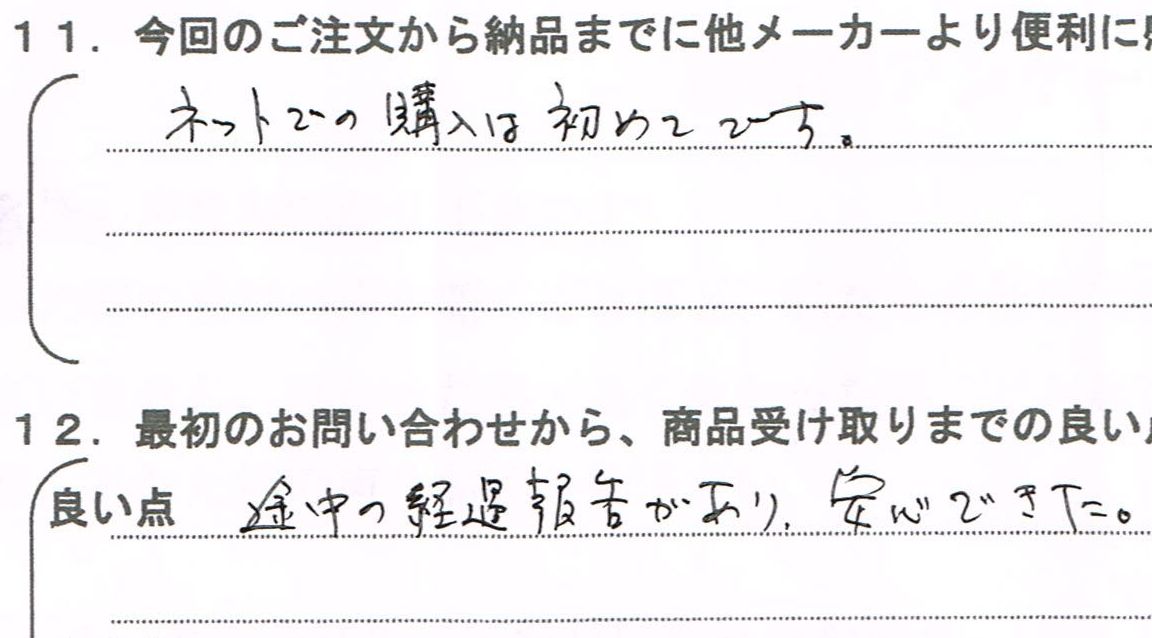 11. 今回のご注文から納品までに他メーカーより便利に
ネットでの購入は初めてです。
12. 最初のお問い合わせから、商品受け取りまでの良い
良い点 途中の経過報告があり、安心できた。